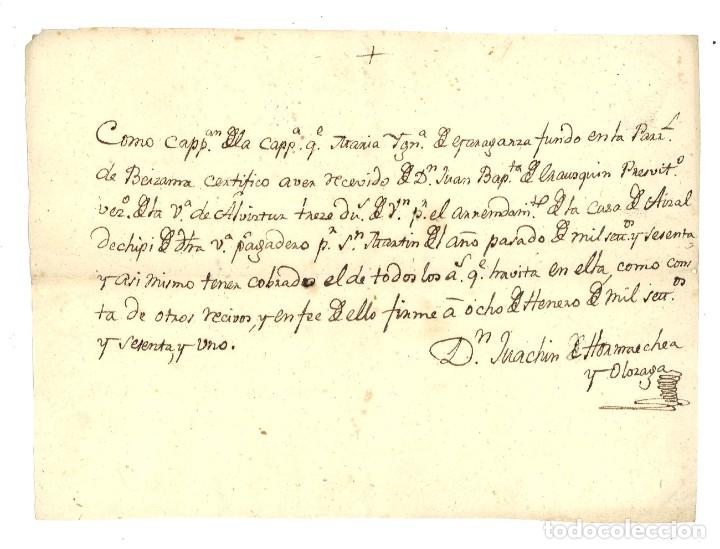 +
Como Capp.an de la Capp.a q.e Maria Ygn.a de Yeraganza fundo en la Parr.l
de Beizama certifico aver recevido de D.n Juan Bap.ta de Erausquin Presvit.o
vez.o de la V.a de Alvistur treze du.s de V.n p.r el arrendam.to de la Casa de Aizal
dechipi de dtra V.a pagadero p.r S.n Martin del año pasado de mil set.os y sesenta
y asi mismo tener cobrado el de todos los a.s q.e havita en ella, como cons
ta de otros recivos, y en fee de ello firme â ocho de Henero de mil set.os
y sesenta, y uno.
D.n Juachin de Hormaechea
y Olozaga
todocoleccion
todocoleccion.net